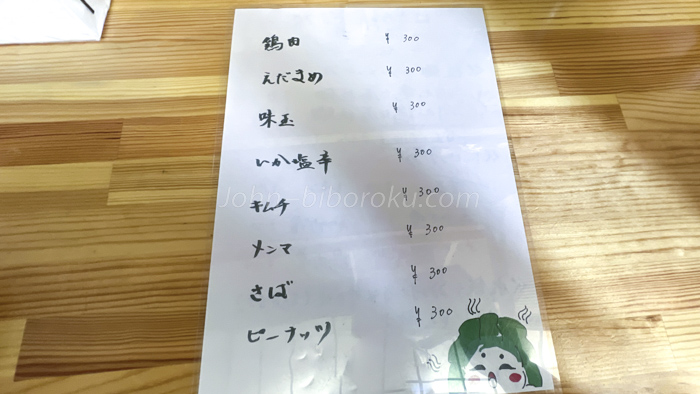 鶴田 ¥300
えだまめ ¥300
味玉 ¥300
いか塩辛 ¥300
キムチ ¥300
メンマ ¥300
さば ¥300
ピーナッツ ¥300
John-biboroku.com